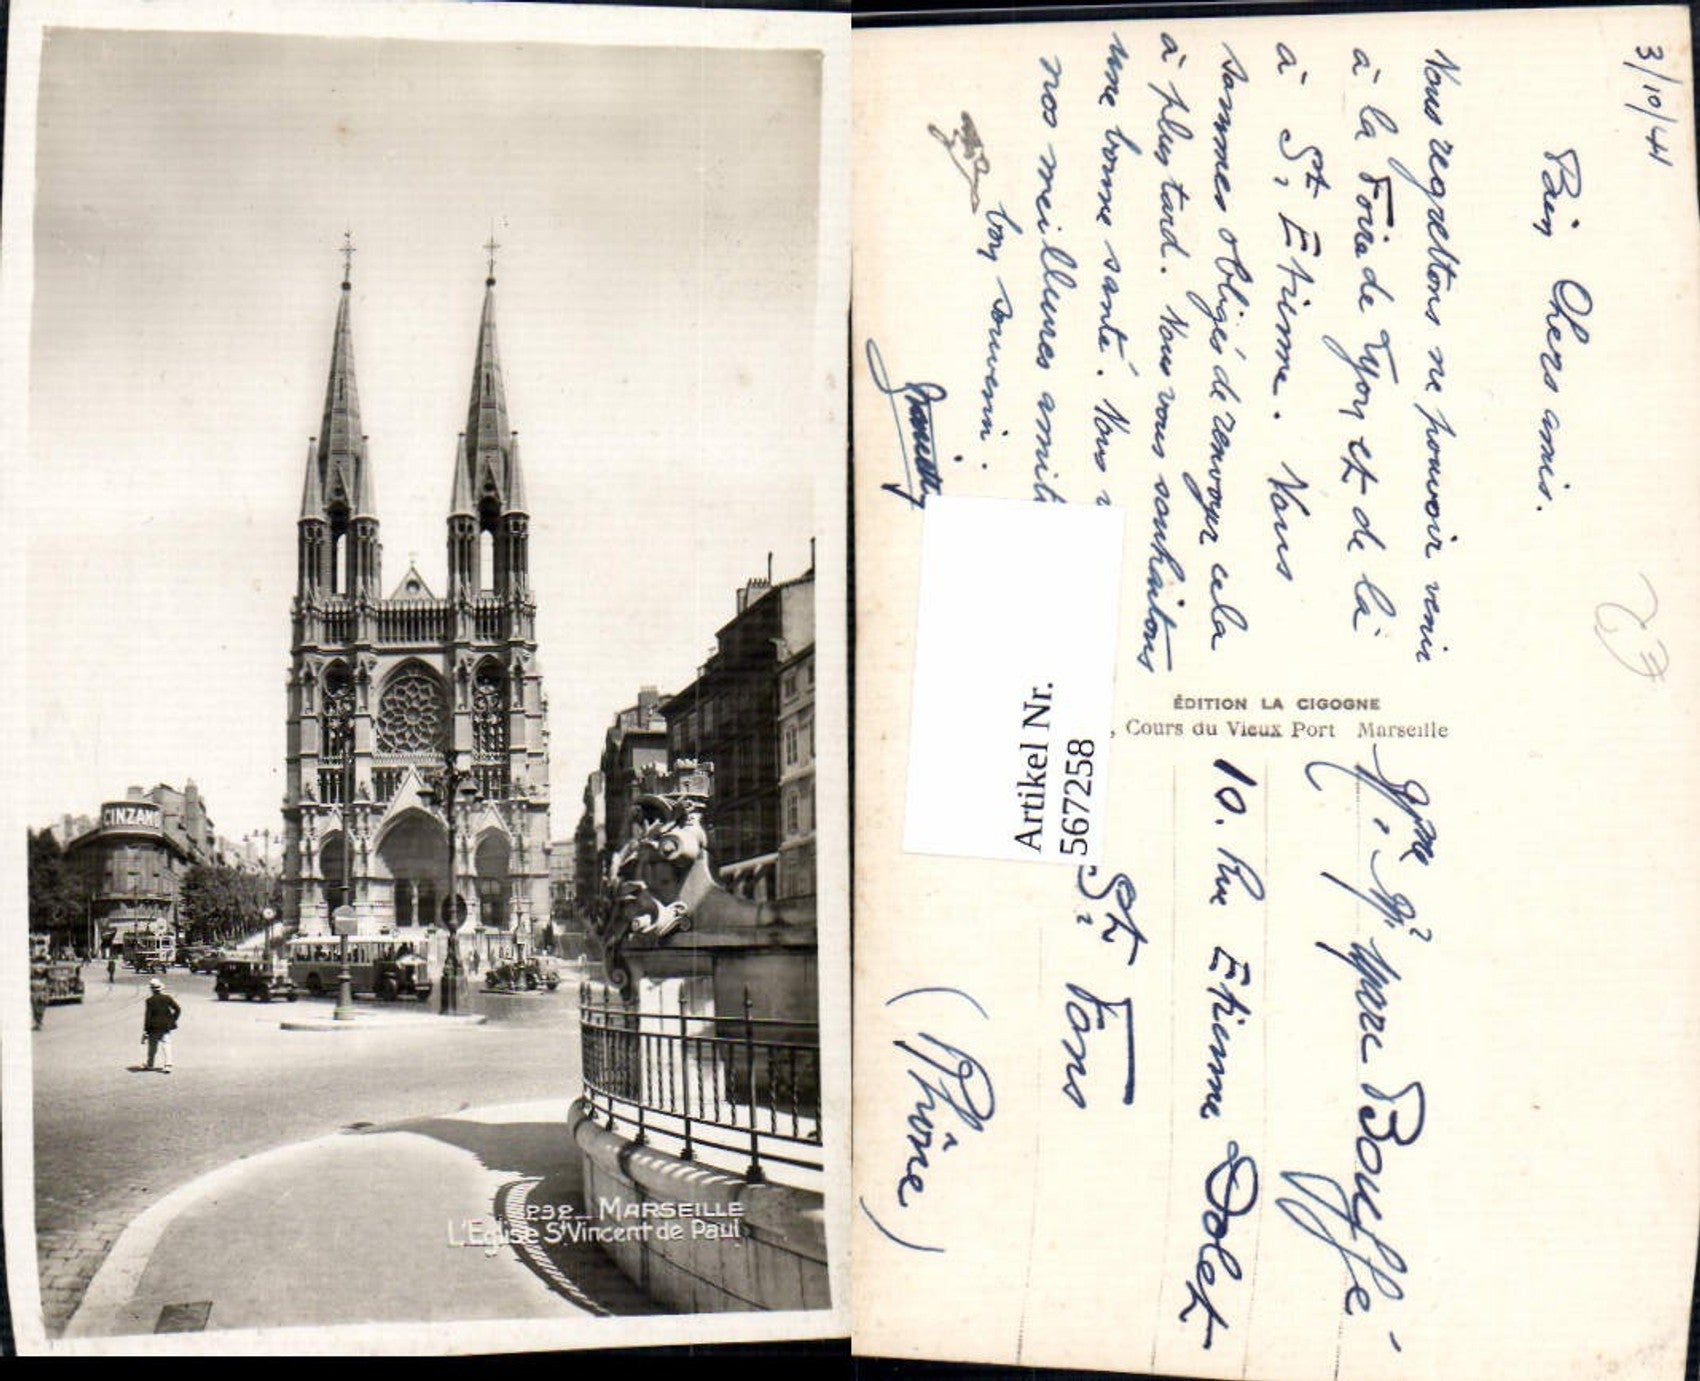 CINZANO
292_ MARSEILLE
L'Eglise St Vincent de Paul
3/10/41
Bien Chers amis.
Nous regrettons ne pouvoir venir
à la Foire de Lyon et de là
à St, Etienne. Nous
sommes obligés de renvoyer cela
à plus tard. Nous vous souhaitons
une bonne santé. Nous
nos meilleures
bon souvenir.
ÉDITION LA CIGOGNE
, Cours du Vieux Port Marseille
Artikel Nr.
567258
Bouffé
10. Rue Etienne Dolet
St Fons
(Rhône)